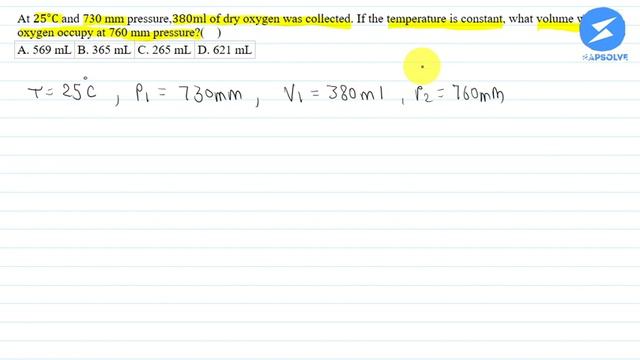 At 25°C and 730 mm pressure,380ml of dry oxygen was collected. If the temperature is constant, what volume
oxygen occupy at 760 mm pressure?( )
A. 569 mL B. 365 mL C. 265 mL D. 621 mL
T = 25°C , P1 = 730mm , V1 = 380ml , P2 = 760mm